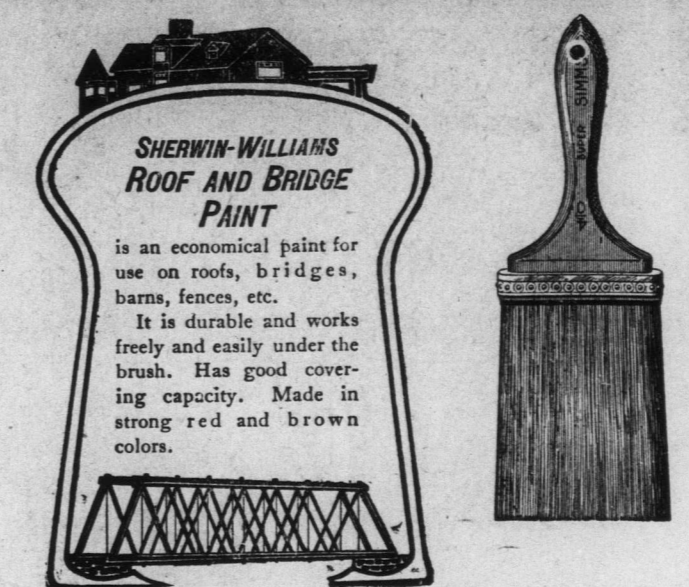 SHERWIN-WILLIAMS
ROOF AND BRIDGE
PAINT
is an economical paint for
use on roofs, bridges,
barns, fences, etc.
It is durable and works
freely and easily under the
brush. Has good cover-
ing capacity. Made in
strong red and brown
colors.
SIMMS
SUPER